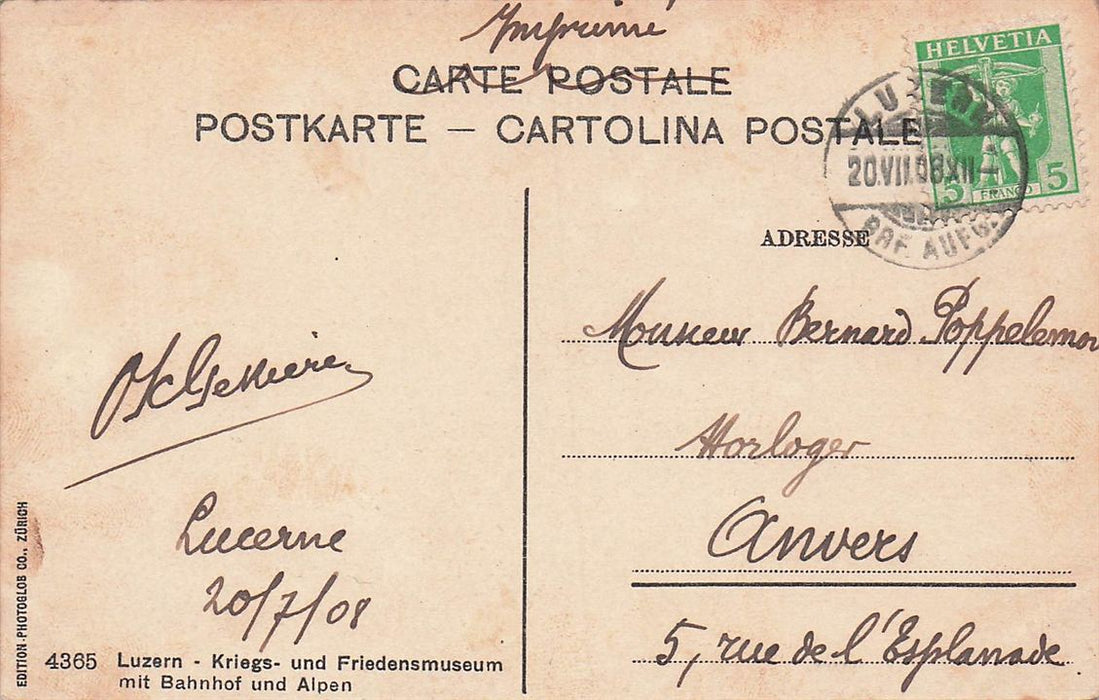 Imprimé
CARTE POSTALE
POSTKARTE — CARTOLINA POSTALE
HELVETIA
5 FRANCO 5
LUZERN
20.VII.08.XII–
BRF. AUFG.
ADRESSE
Monsieur Bernard Poppelemon
Horloger
Anvers
5, rue de l'Esplanade
Lucerne
20/7/08
4365 Luzern - Kriegs- und Friedensmuseum
mit Bahnhof und Alpen
EDITION-PHOTOGLOB CO., ZÜRICH